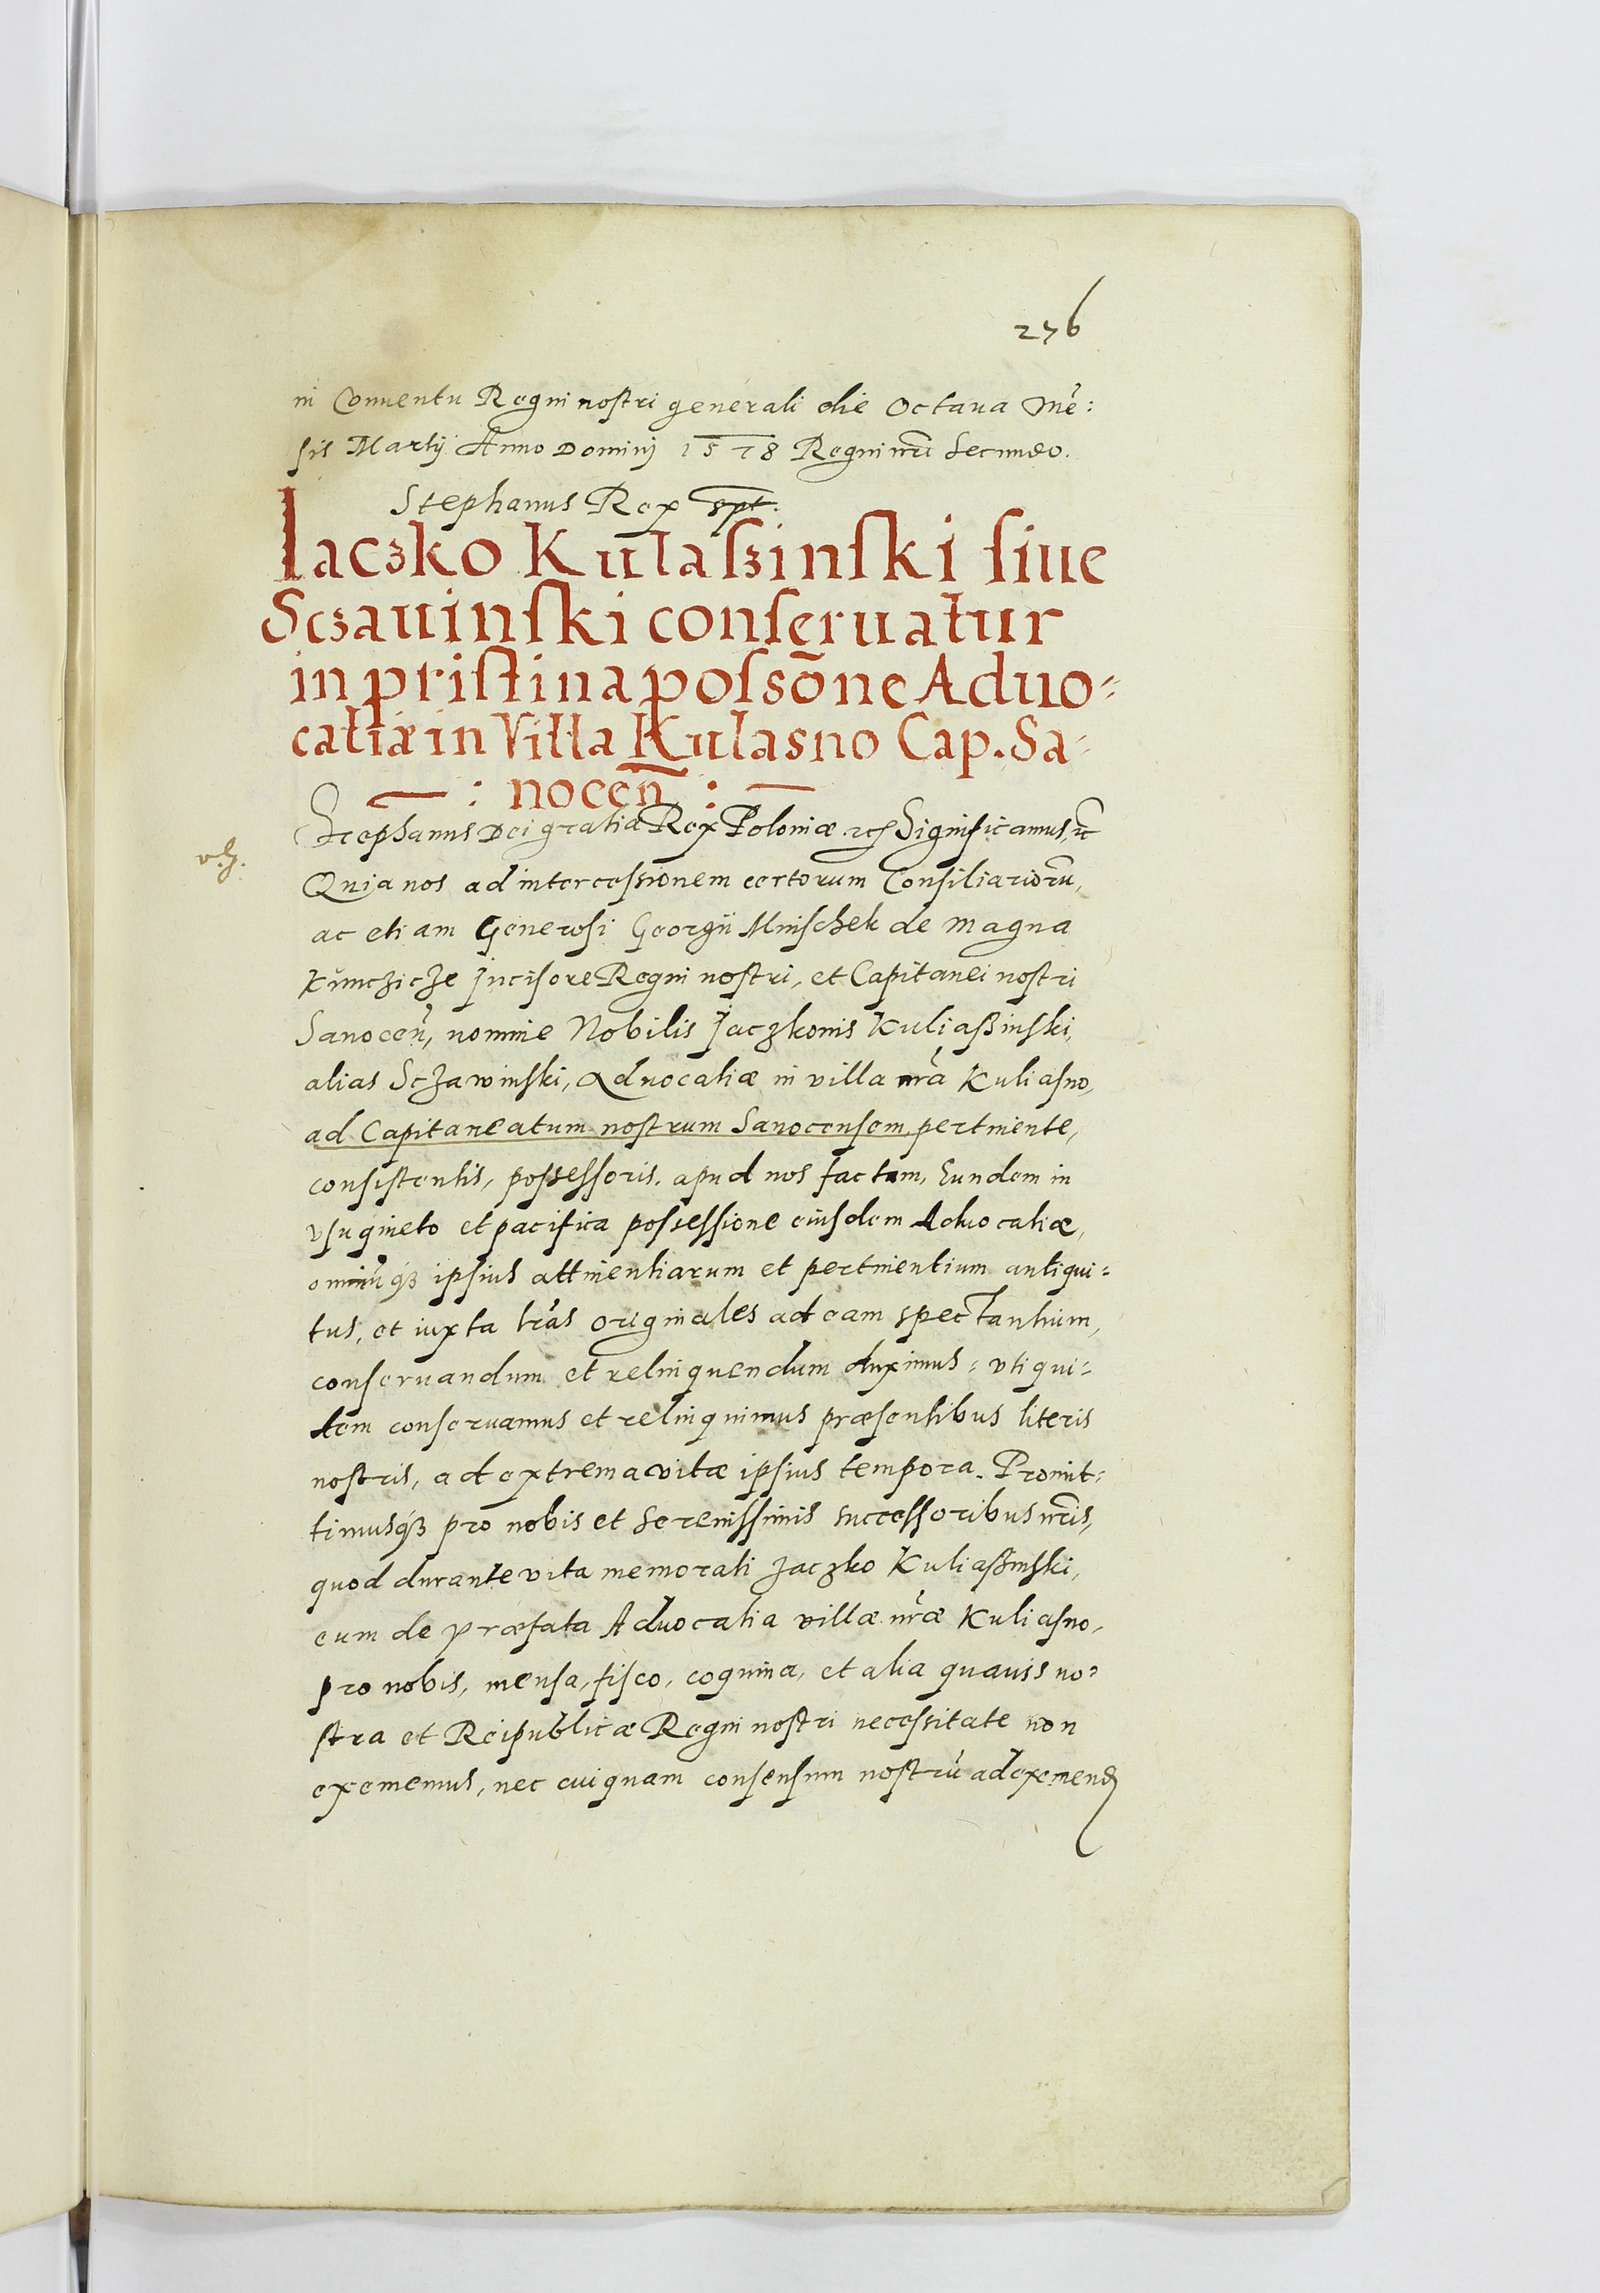 276
in Conuentu Regni nostri generali die Octaua Mẽ:
sis Martij Anno Dominj 1578 Regni nr̃i Secundo.
Stephanus Rex spt.
Iaczko Kulaszinski siue
Sczauinski conseruatur
in pristina possõne Aduo=
catiæ in Villa Kulasno Cap. Sa=
: nocen̄ :
Stephanus Dei gratia Rex Poloniæ etc Significamus, etc
Quia nos ad intercessionem certorum Consiliariorũ,
ac etiam Generosi Georgii Mnischek de magna
Kunczicze Incisore Regni nostri, et Capitanei nostri
Sanocen̄, nomine Nobilis Jaczkonis Kuliaßinski,
alias Sczawinski, Aduocatiæ in villa nr̃a Kuliasno,
ad Capitaneatum nostrum Sanocensem, pertinente,
consistentis, possessoris, apud nos factam, Eundem in
vsu quieto et pacifica possessione eiusdem Aduocatiæ,
omniũqȝ ipsius attinentiarum et pertinentium antiqui=
tus, et iuxta lr̃as originales ad eam spectantium,
conseruandum et relinquendum duximus= vti qui=
dem conseruamus et relinquimus præsentibus literis
nostris, ad extrema vitæ ipsius tempora. Promit=
timusqȝ pro nobis et Serenissimis successoribus nr̃is,
quod durante vita memorati Jaczko Kuliaßinski,
eum de præfata Aduocatia villæ nr̃æ Kuliasno,
pro nobis, mensa, fisco, coquina, et alia quauis no=
stra et Reipublicæ Regni nostri necessitate non
exememus, nec cuiquam consensum nostrũ ad eximend